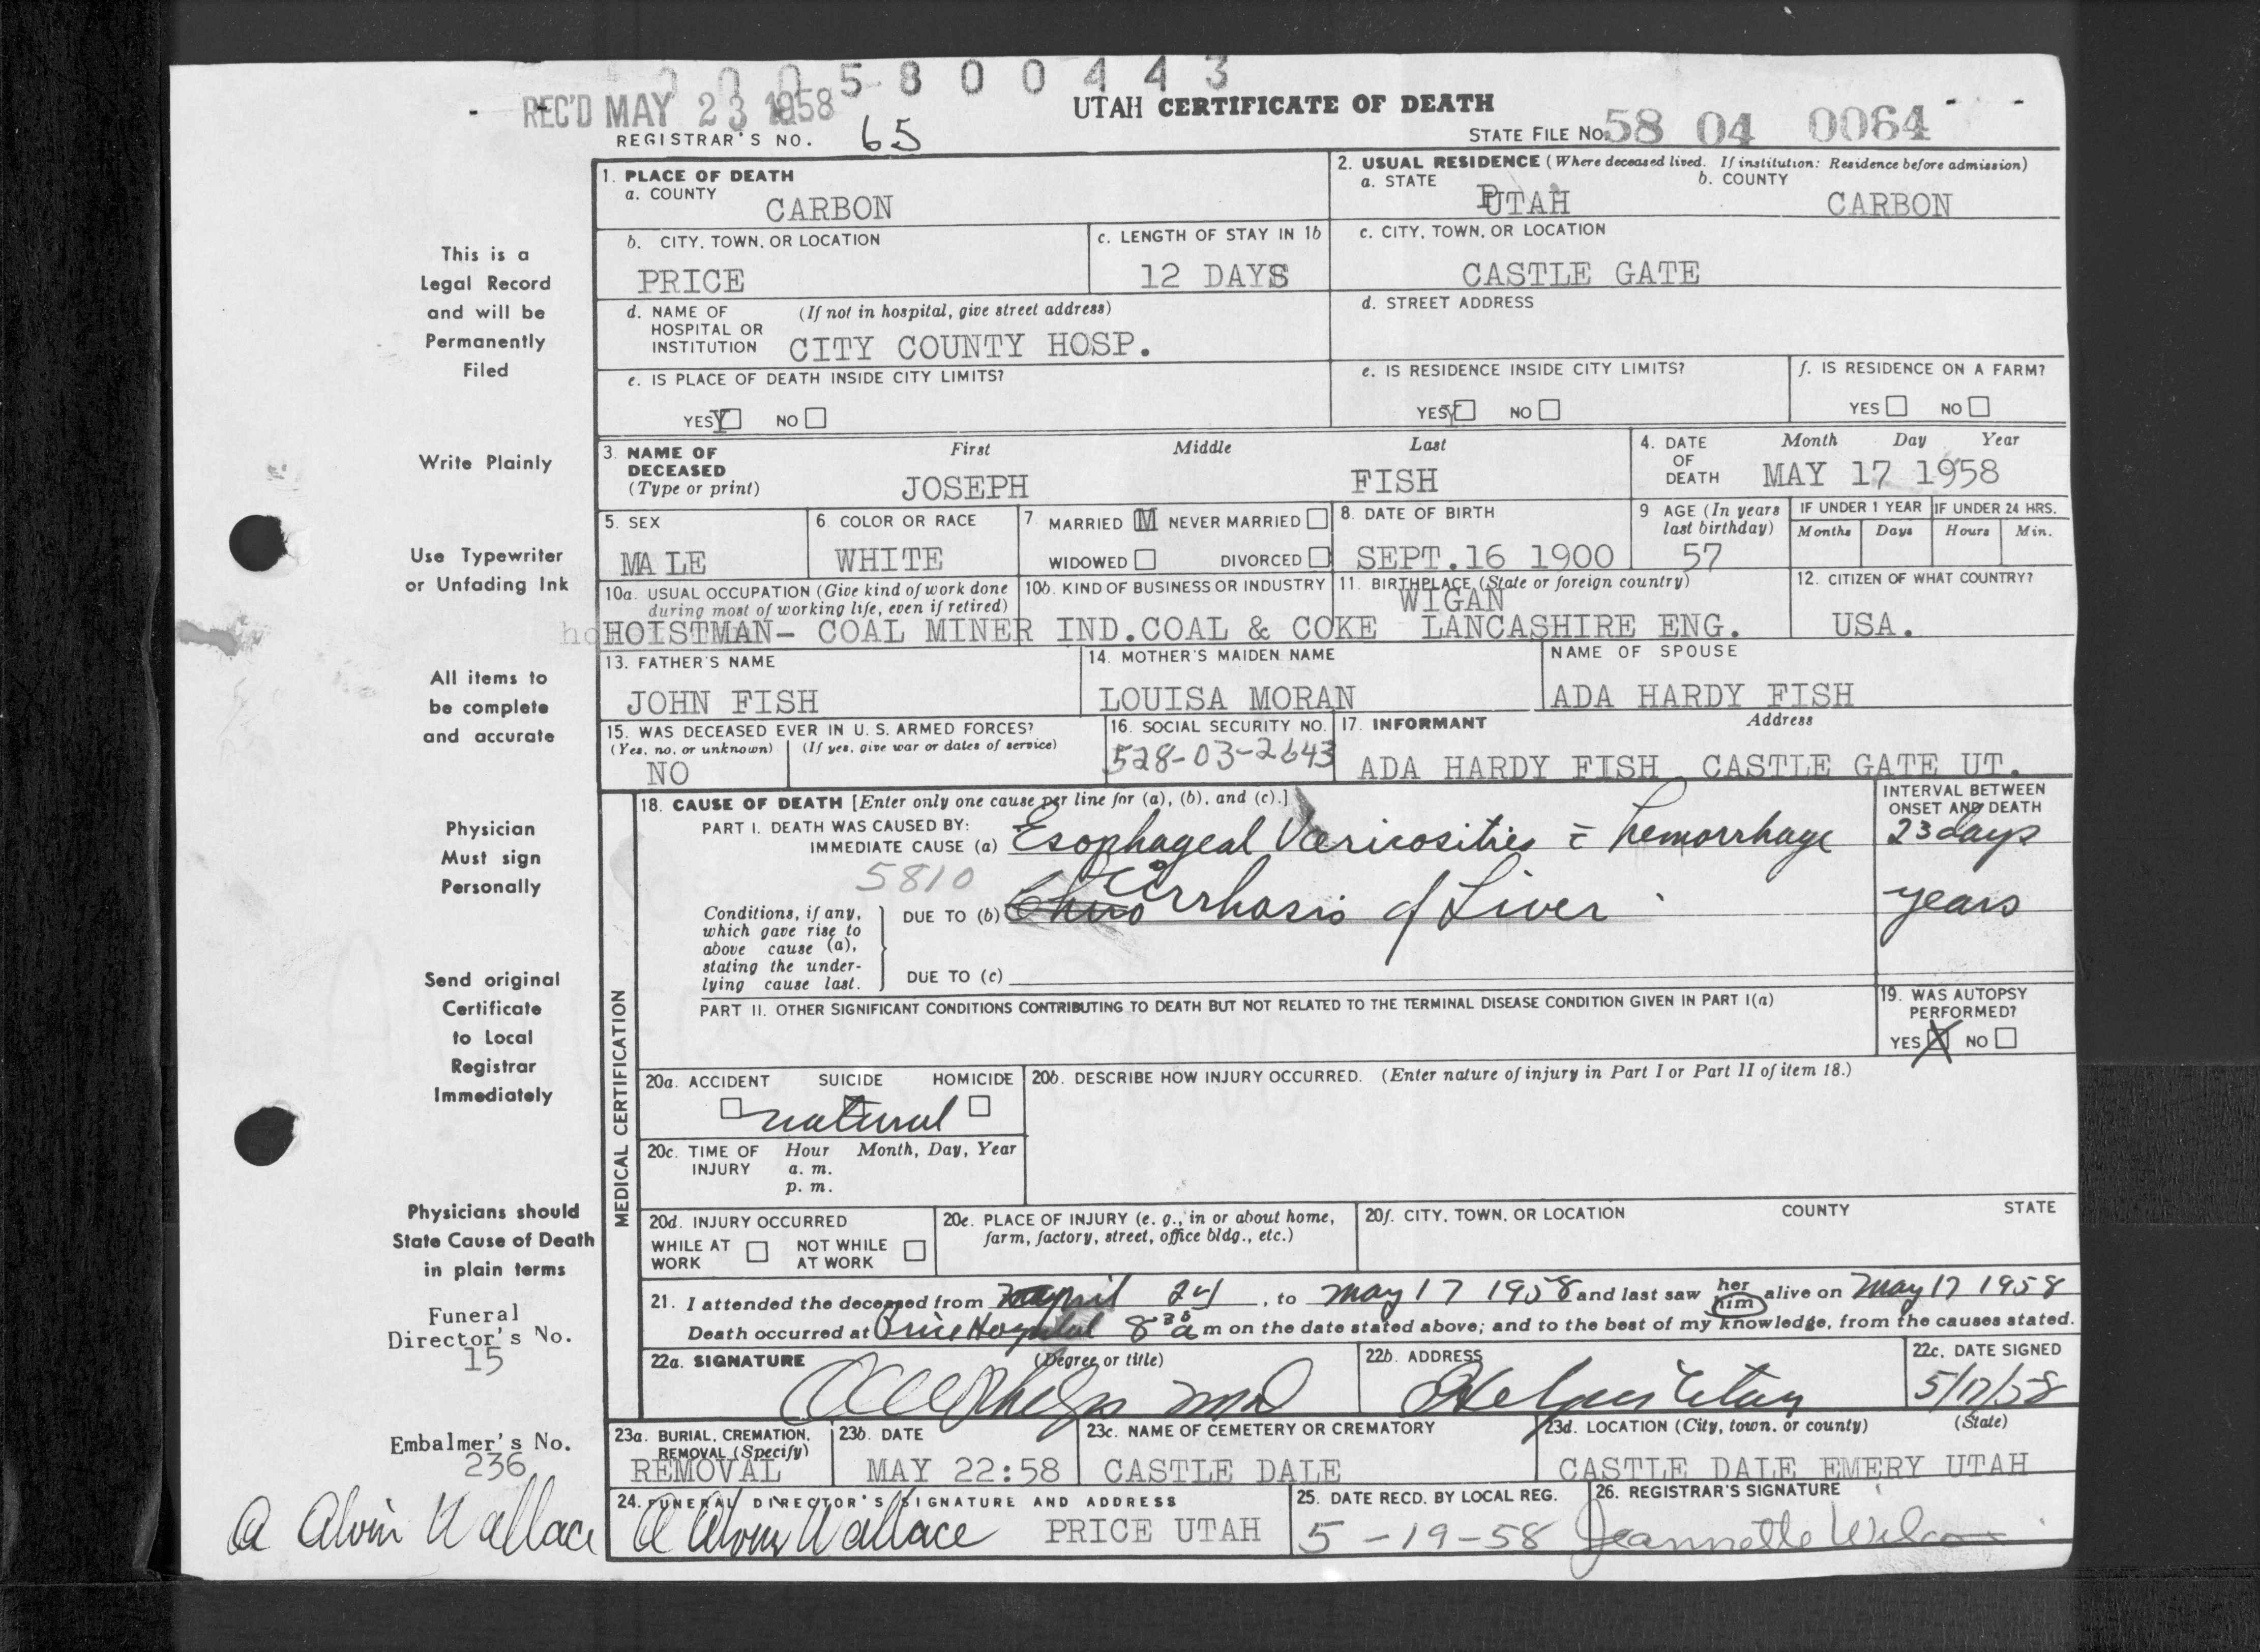 0005800443
REC'D MAY 23 1958
UTAH CERTIFICATE OF DEATH
REGISTRAR'S NO. 65
STATE FILE No. 58 04 0064
This is a
Legal Record
and will be
Permanently
Filed
Write Plainly
Use Typewriter
or Unfading Ink
All items to
be complete
and accurate
Physician
Must sign
Personally
Send original
Certificate
to Local
Registrar
Immediately
Physicians should
State Cause of Death
in plain terms
Funeral
Director's No.
15
Embalmer's No.
236
A Alvin Wallace
1. PLACE OF DEATH
a. COUNTY
CARBON
2. USUAL RESIDENCE (Where deceased lived. If institution: Residence before admission)
a. STATE
UTAH
b. COUNTY
CARBON
b. CITY, TOWN, OR LOCATION
PRICE
c. LENGTH OF STAY IN 1b
12 DAYS
c. CITY, TOWN, OR LOCATION
CASTLE GATE
d. NAME OF (If not in hospital, give street address)
HOSPITAL OR
INSTITUTION CITY COUNTY HOSP.
d. STREET ADDRESS
e. IS PLACE OF DEATH INSIDE CITY LIMITS?
YES Y NO
e. IS RESIDENCE INSIDE CITY LIMITS?
YES Y NO
f. IS RESIDENCE ON A FARM?
YES NO
3. NAME OF
DECEASED
(Type or print)
First Middle Last
JOSEPH FISH
4. DATE
OF
DEATH
Month Day Year
MAY 17 1958
5. SEX
MALE
6. COLOR OR RACE
WHITE
7. MARRIED M NEVER MARRIED
WIDOWED DIVORCED
8. DATE OF BIRTH
SEPT.16 1900
9 AGE (In years
last birthday)
57
IF UNDER 1 YEAR
Months Days
IF UNDER 24 HRS.
Hours Min.
10a. USUAL OCCUPATION (Give kind of work done
during most of working life, even if retired)
HOISTMAN- COAL MINER
10b. KIND OF BUSINESS OR INDUSTRY
IND.COAL & COKE
11. BIRTHPLACE (State or foreign country)
WIGAN
LANCASHIRE ENG.
12. CITIZEN OF WHAT COUNTRY?
USA.
13. FATHER'S NAME
JOHN FISH
14. MOTHER'S MAIDEN NAME
LOUISA MORAN
NAME OF SPOUSE
ADA HARDY FISH
15. WAS DECEASED EVER IN U. S. ARMED FORCES?
(Yes, no, or unknown) (If yes, give war or dates of service)
NO
16. SOCIAL SECURITY NO.
528-03-2643
17. INFORMANT Address
ADA HARDY FISH CASTLE GATE UT.
MEDICAL CERTIFICATION
18. CAUSE OF DEATH [Enter only one cause per line for (a), (b), and (c).]
PART I. DEATH WAS CAUSED BY:
IMMEDIATE CAUSE (a) Esophageal Varicosities c̄ hemorrhage
5810
INTERVAL BETWEEN
ONSET AND DEATH
23 days
Conditions, if any,
which gave rise to
above cause (a),
stating the under-
lying cause last.
DUE TO (b) Cirrhosis of Liver
years
DUE TO (c)
PART II. OTHER SIGNIFICANT CONDITIONS CONTRIBUTING TO DEATH BUT NOT RELATED TO THE TERMINAL DISEASE CONDITION GIVEN IN PART I(a)
19. WAS AUTOPSY
PERFORMED?
YES X NO
20a. ACCIDENT SUICIDE HOMICIDE
natural
20b. DESCRIBE HOW INJURY OCCURRED. (Enter nature of injury in Part I or Part II of item 18.)
20c. TIME OF Hour Month, Day, Year
INJURY a. m.
p. m.
20d. INJURY OCCURRED
WHILE AT NOT WHILE
WORK AT WORK
20e. PLACE OF INJURY (e. g., in or about home,
farm, factory, street, office bldg., etc.)
20f. CITY, TOWN, OR LOCATION COUNTY STATE
21. I attended the deceased from April 24, to May 17 1958 and last saw her him alive on May 17 1958
Death occurred at Price Hospital 8 30 a m on the date stated above; and to the best of my knowledge, from the causes stated.
22a. SIGNATURE (Degree or title)
Phelps MD
22b. ADDRESS
Helper Utah
22c. DATE SIGNED
5/17/58
23a. BURIAL, CREMATION,
REMOVAL (Specify)
REMOVAL
23b. DATE
MAY 22:58
23c. NAME OF CEMETERY OR CREMATORY
CASTLE DALE
23d. LOCATION (City, town, or county) (State)
CASTLE DALE EMERY UTAH
24. FUNERAL DIRECTOR'S SIGNATURE AND ADDRESS
A Alvin Wallace PRICE UTAH
25. DATE RECD. BY LOCAL REG.
5-19-58
26. REGISTRAR'S SIGNATURE
Jeannette Wilcox